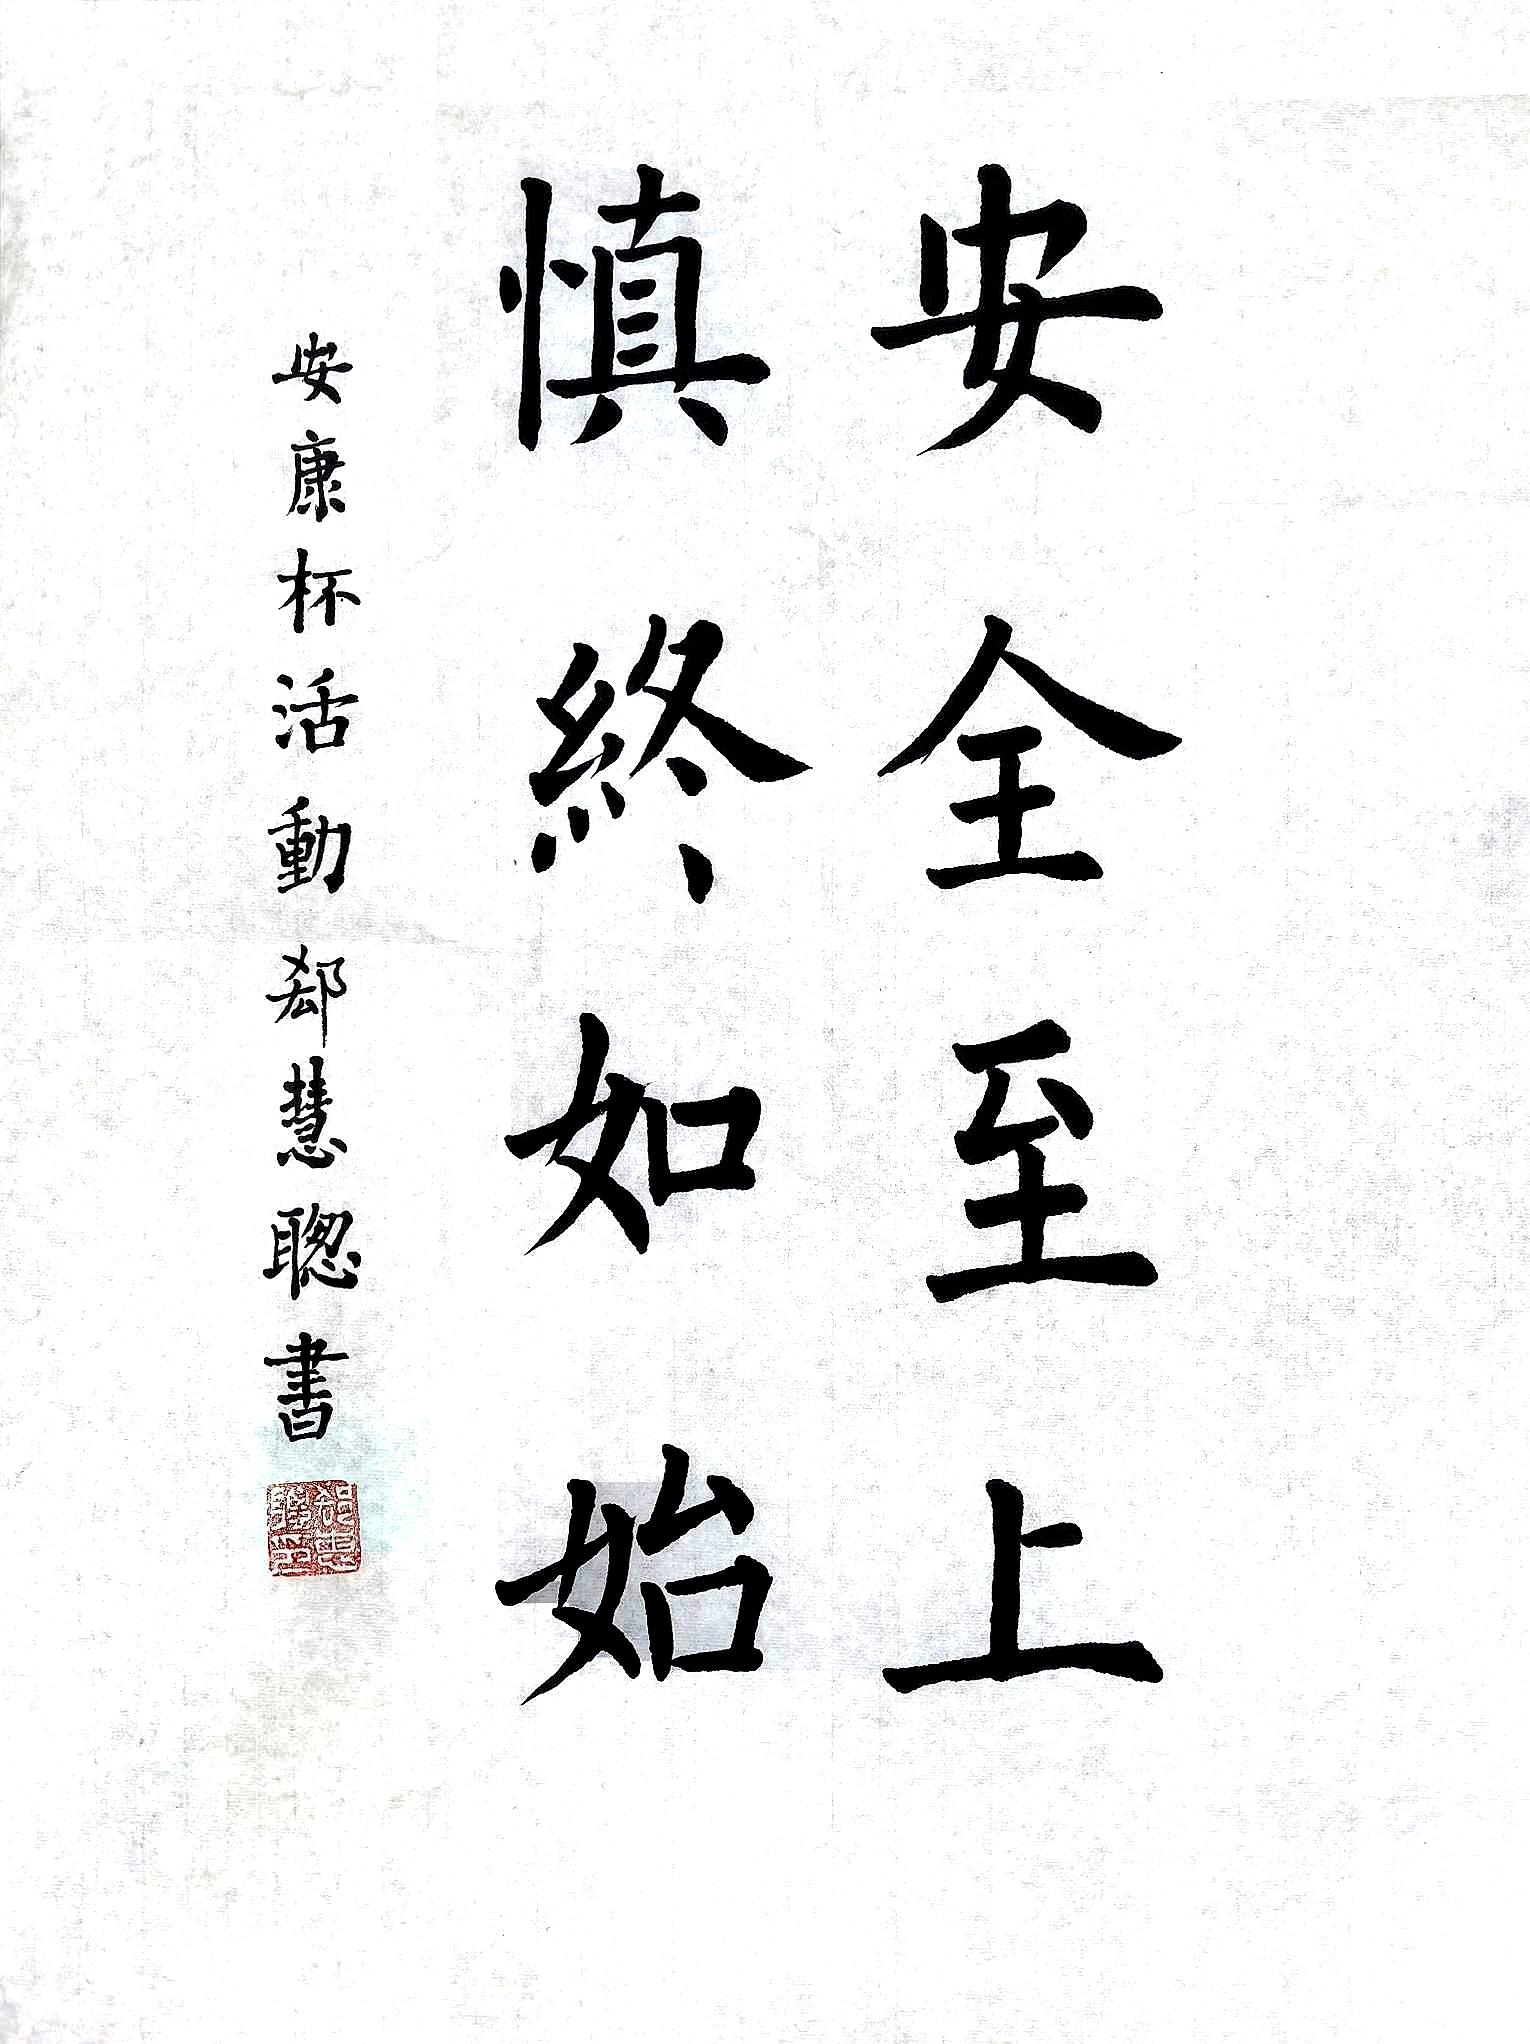 安全至上
慎終如始
安康杯活動郄慧聰書